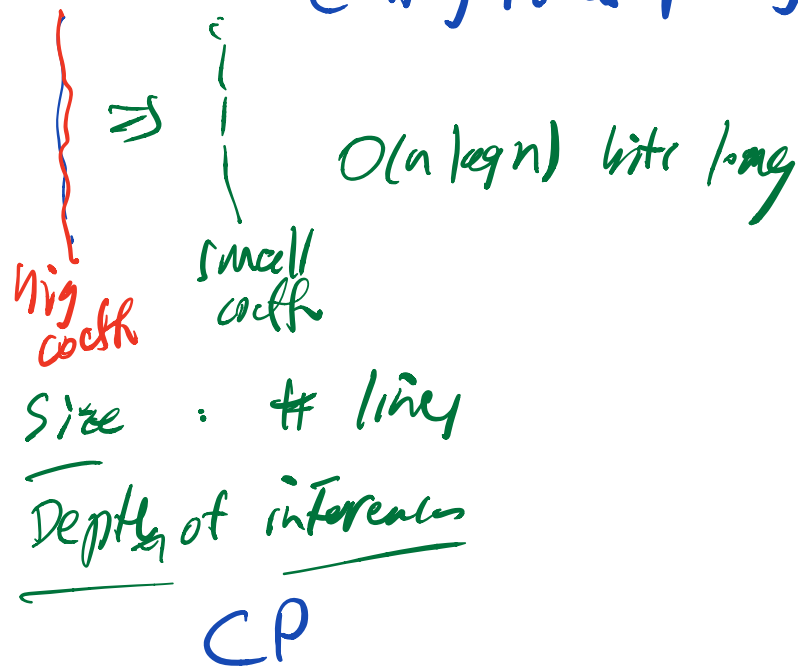 ⇒
O(n log n) bits long
big coeff
small coeff
Size : # lines
Depth of inferences
CP